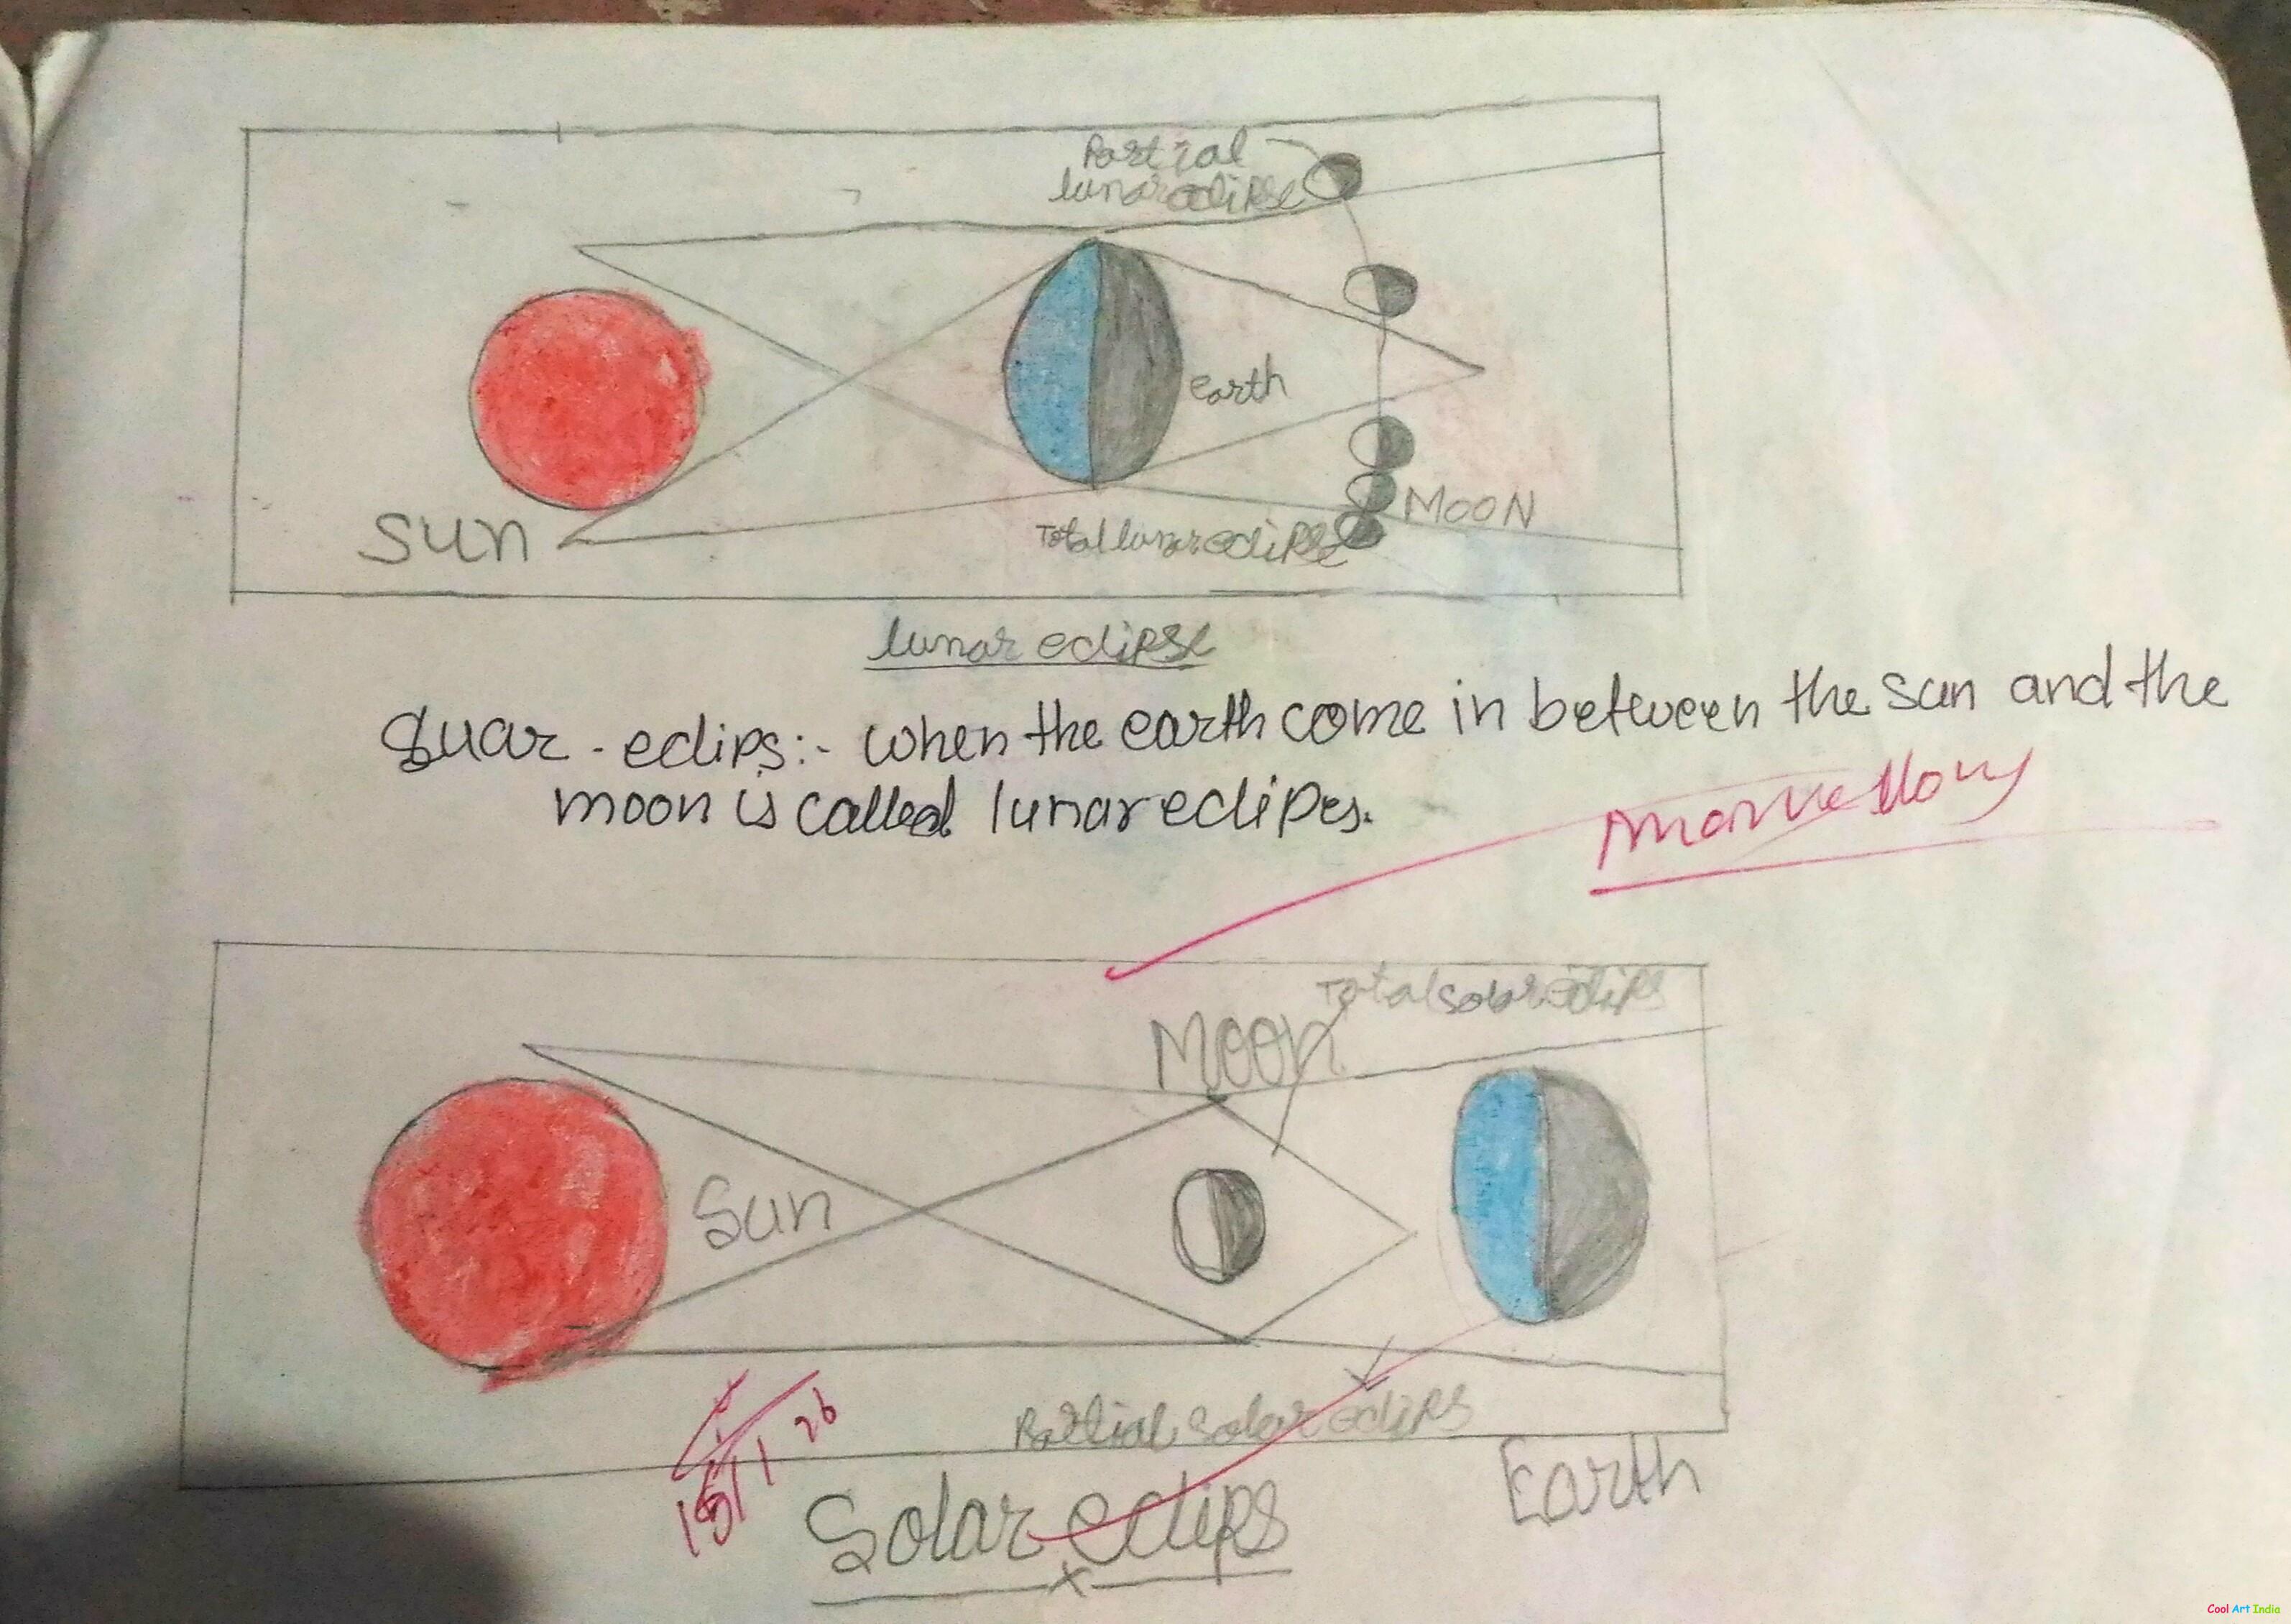 Partial
lunar eclipse
earth
MOON
sun
Total lunar eclipse
lunar eclipse
eclips:- when the earth come in between the sun and the
moon is called lunar eclipes.
marvellous
Total solar eclips
Moon
Sun
Partial solar eclips
15/1 26
Earth
Solar eclips
Cool Art India